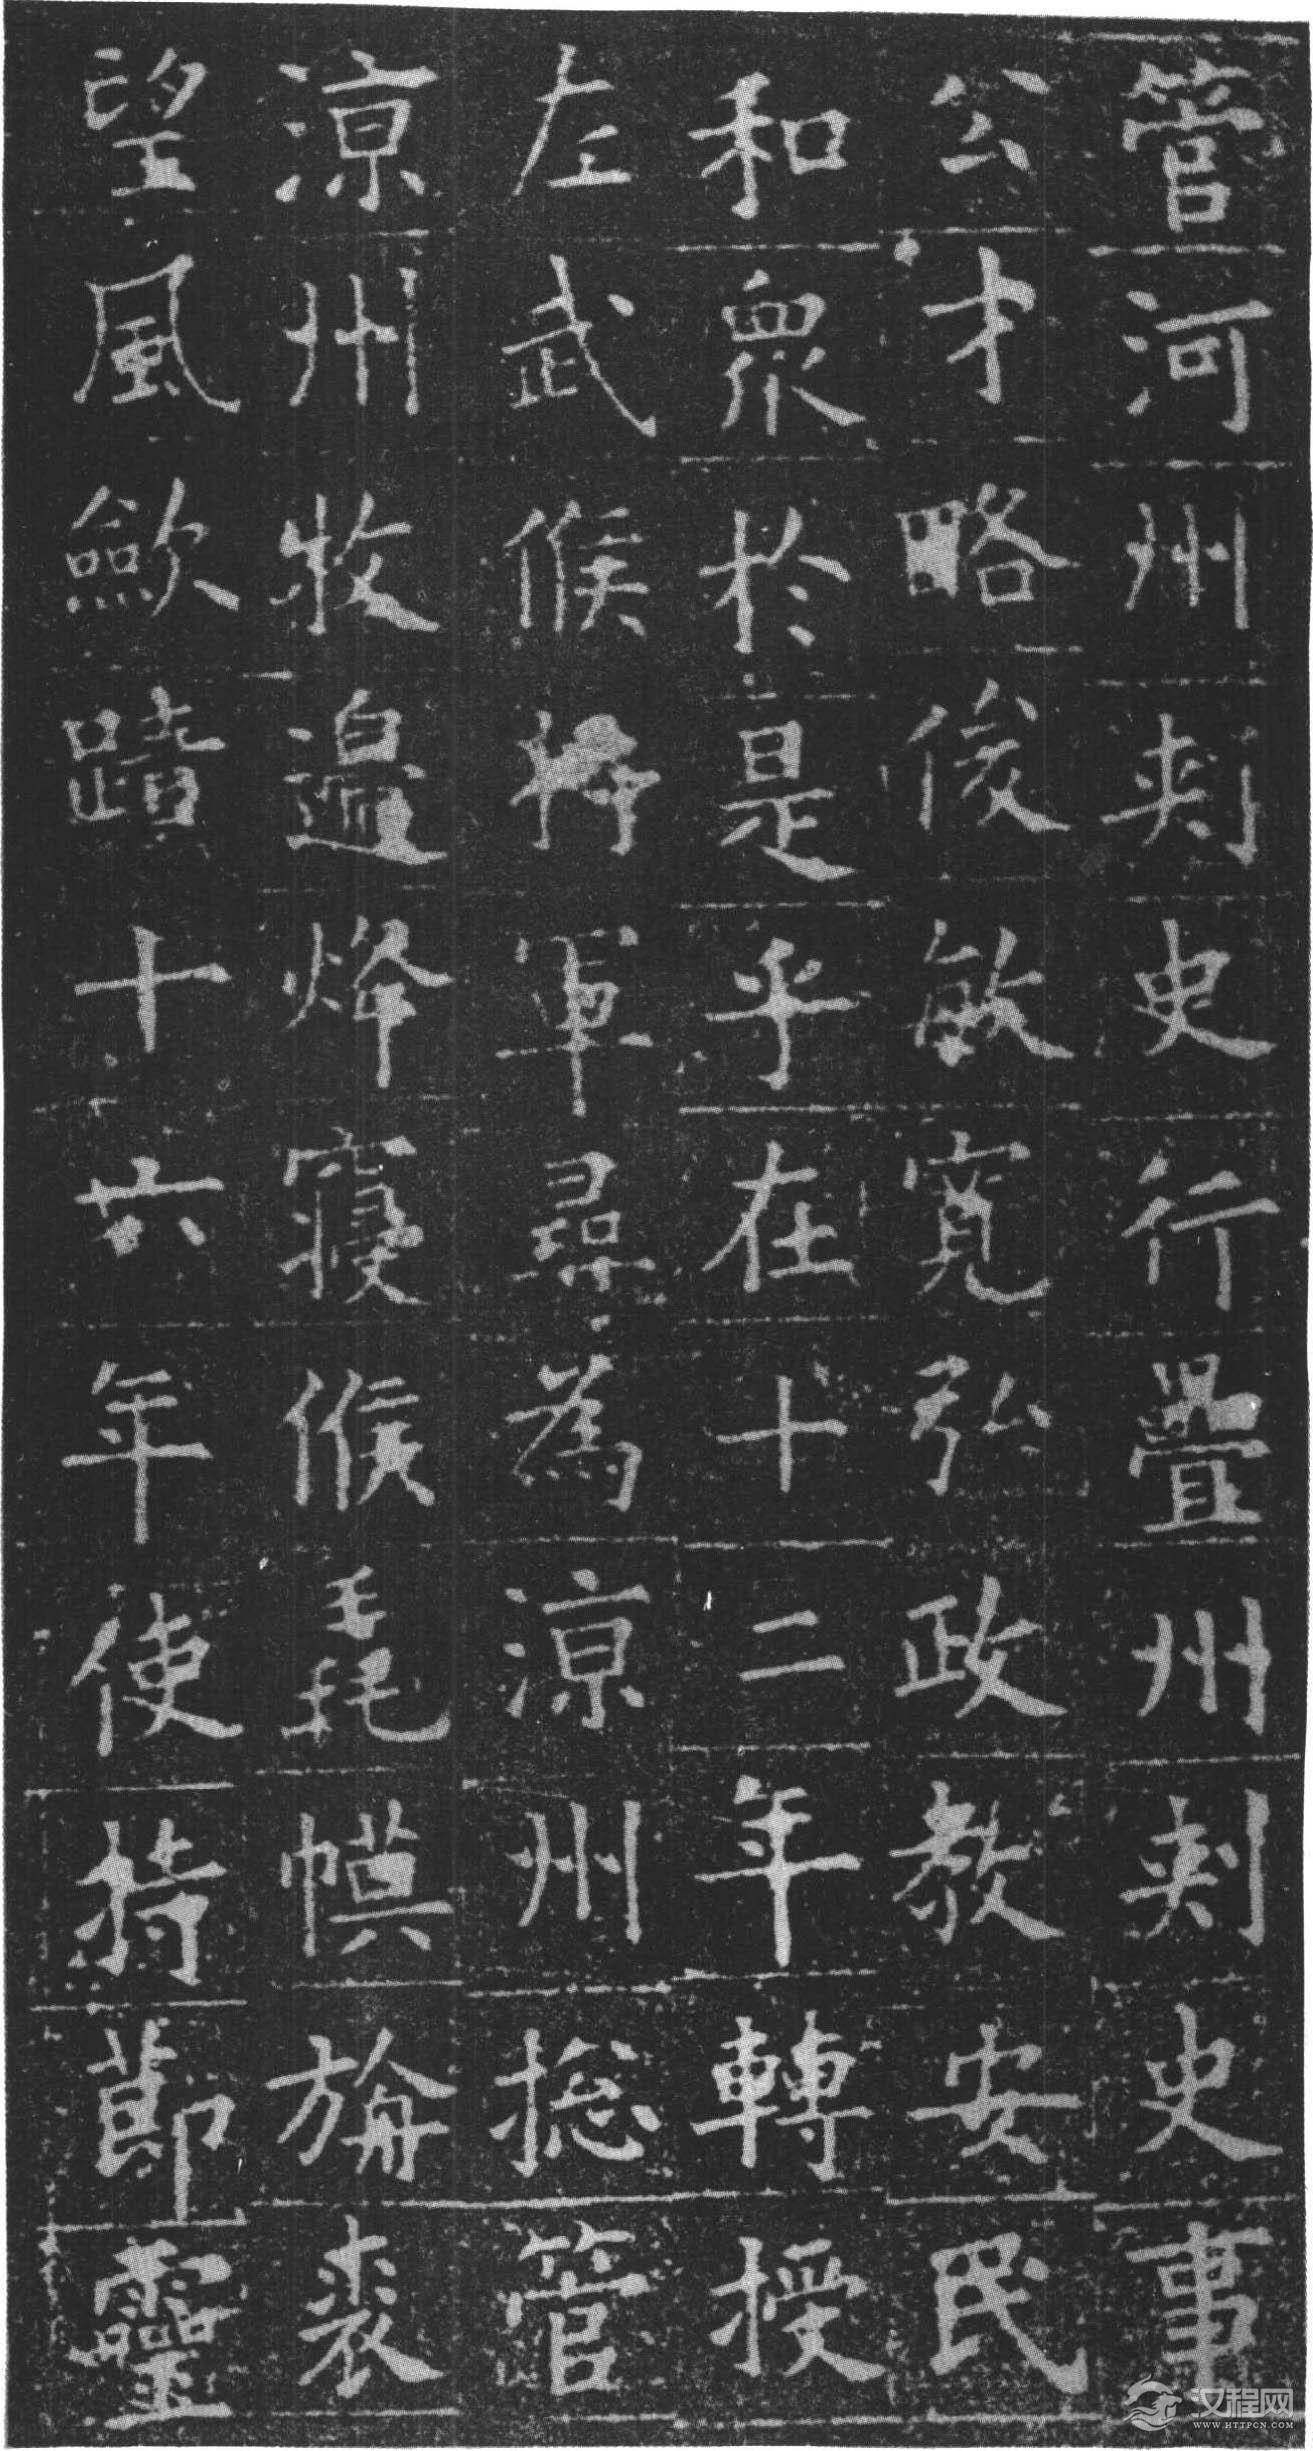 管河州刺史行疊州刺史事
公才略俊敏寬弘政教安民
和衆於是乎在十二年轉授
左武候將軍尋為涼州揔管
涼州牧邉烽寝候毳幙旃裘
望風歛蹟十六年使持節靈
汉程网
WWW.HTTPCN.COM